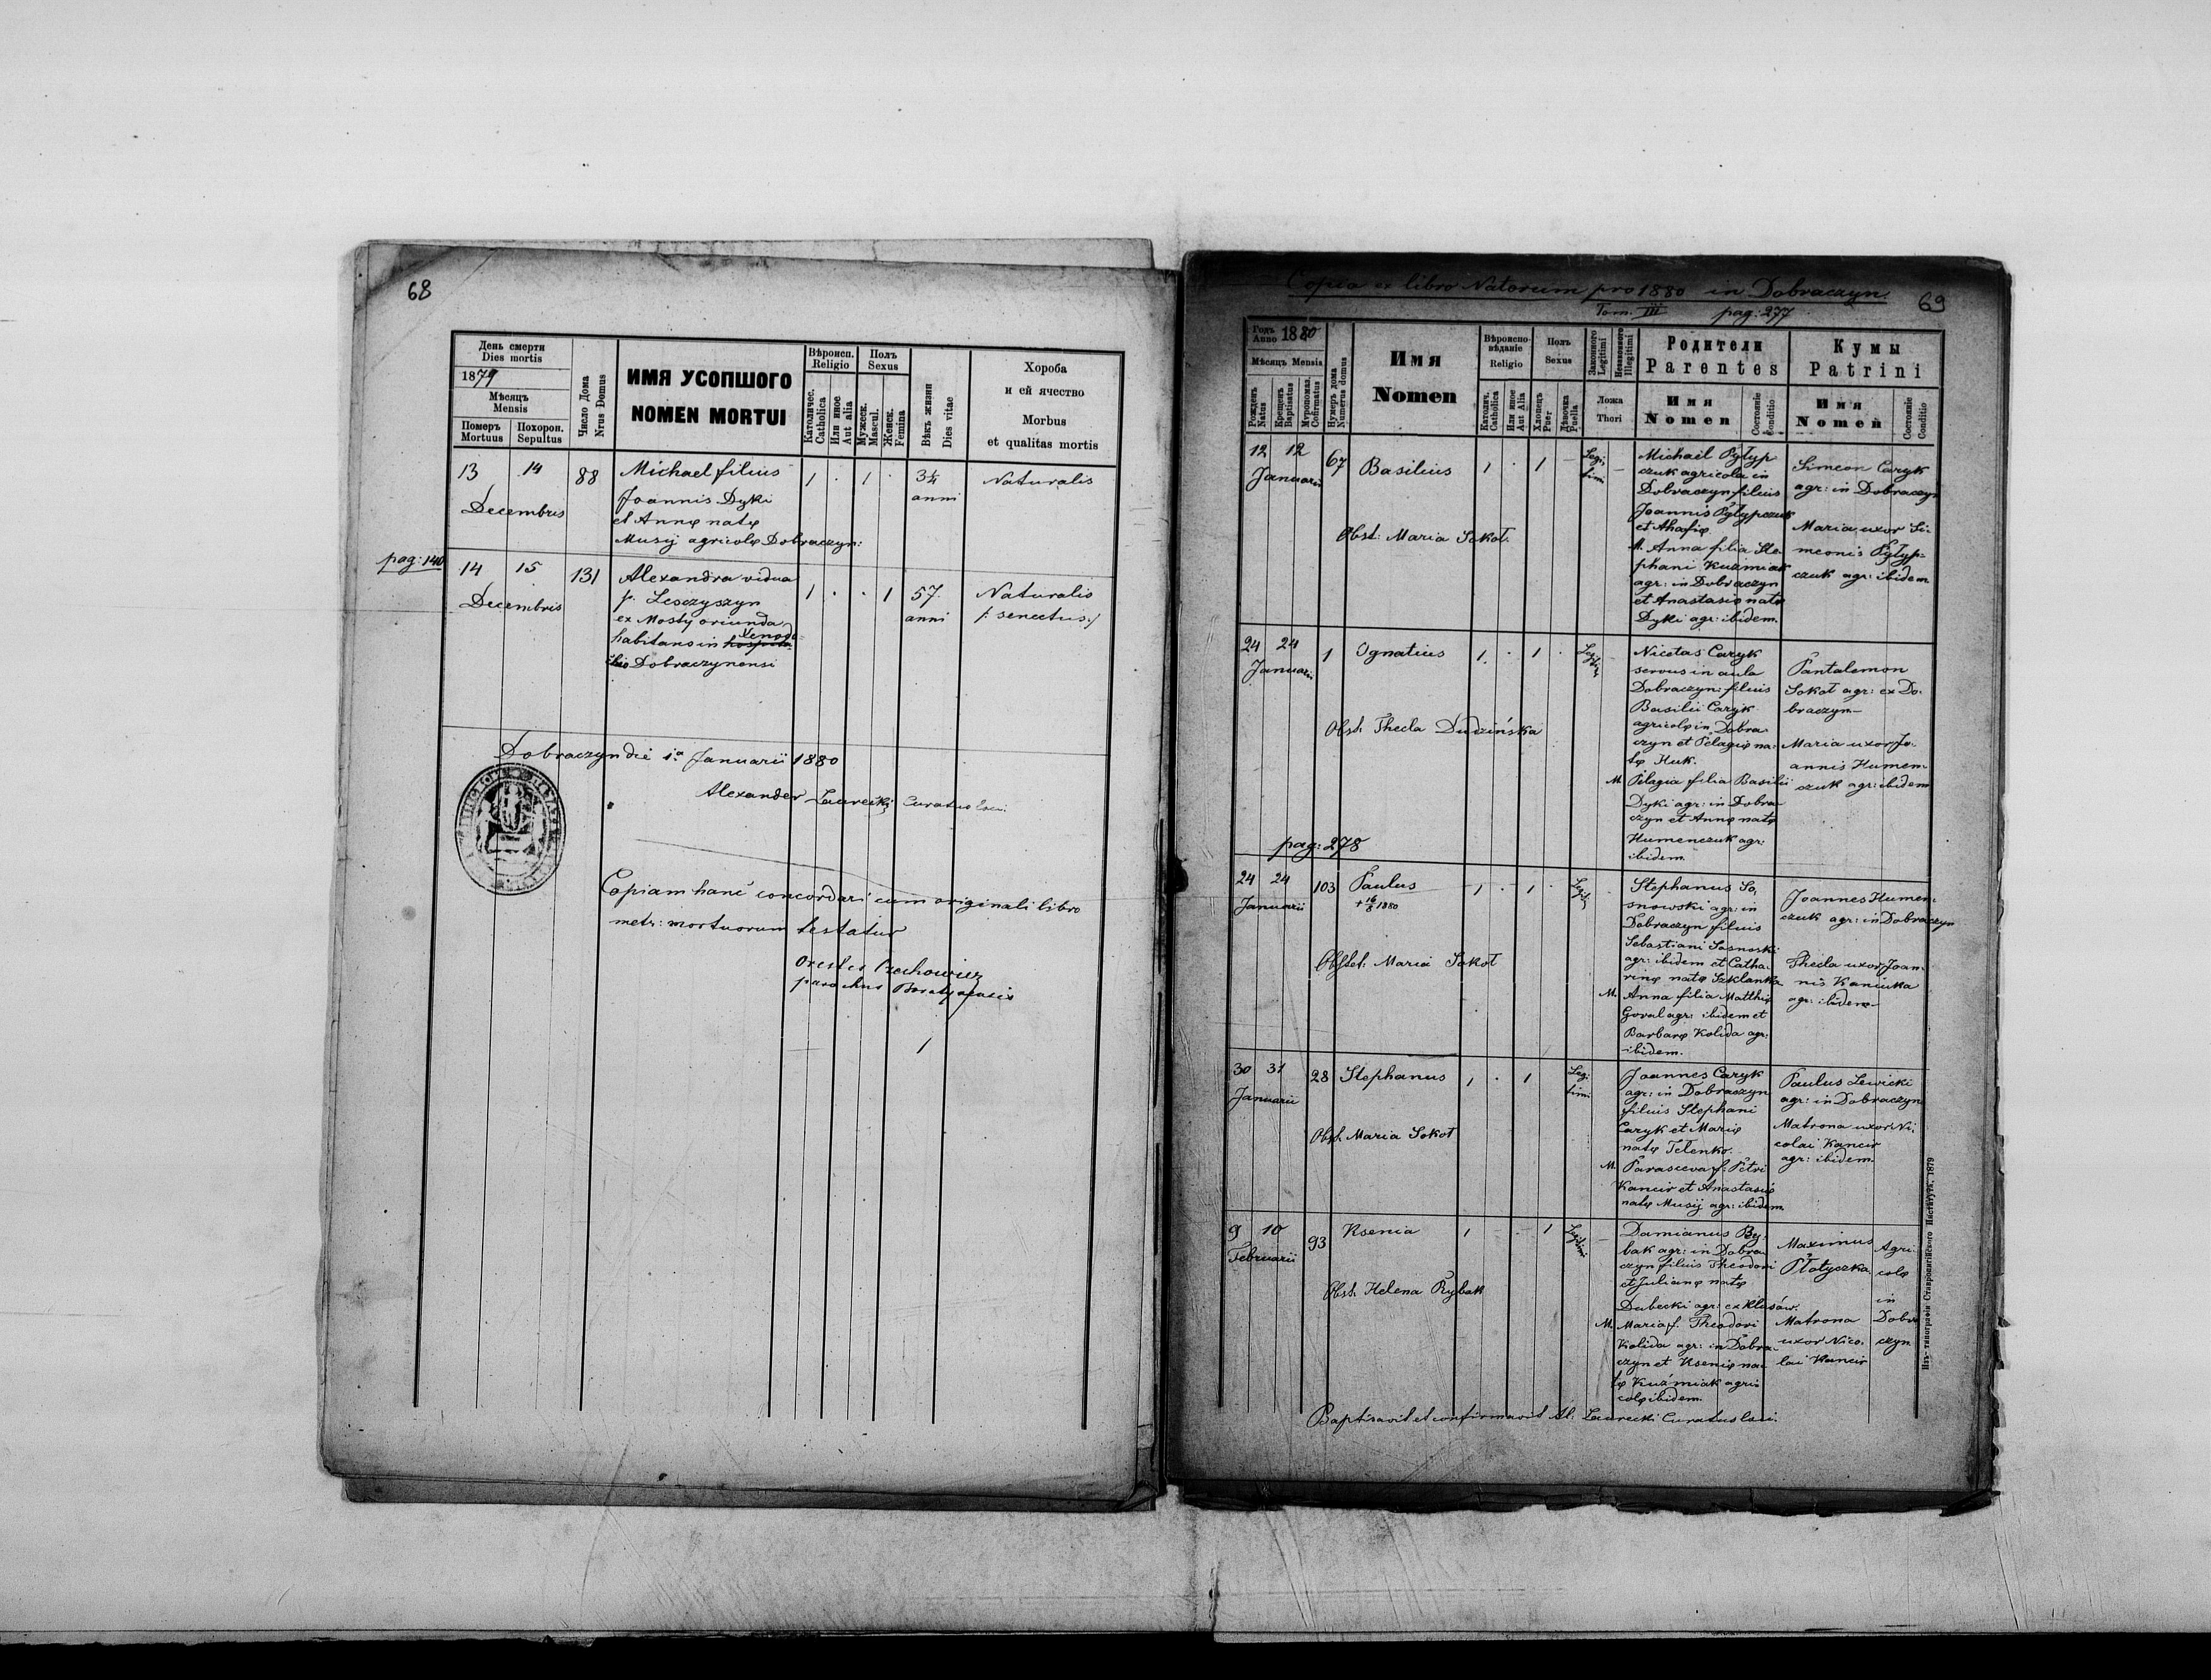 68
День смерти
Dies mortis
1879
Мѣсяцъ
Mensis
Померъ
Mortuus
Похорон.
Sepultus
Число Дома
Nrus Domus
ИМЯ УСОПШОГО
NOMEN MORTUI
Вѣроисп.
Religio
Католичес.
Catholica
Или иное
Aut alia
Полъ
Sexus
Мужеск.
Mascul.
Женск.
Femina
Вѣкъ жизни
Dies vitae
Хороба
и ей ячество
Morbus
et qualitas mortis
13 14 88 Michael filius 1 · 1 · Naturalis
Decembris Joannis Dyki anni
et Annę natę
Musij agricolę Dobraczyn:
pag: 140
14 15 131 Alexandra vidua 1 · · 1 57 Naturalis
Decembris p. Lesczyszyn anni /: senectus :/
ex Mosty oriunda
habitans in
Dobraczynensi
Dobraczyn die 1a Januarii 1880
Alexander Laurecki Curatus
Copiam hanc concordari cum originali libro
metr: mortuorum testatur
Orestes
parochus
Copia ex libro Natorum pro 1880 in Dobraczyn.
Tom. III pag: 277
69
Годъ
Anno 1880
Мѣсяцъ Mensis
Рожденъ
Natus
Крещенъ
Baptisatus
Мѵропомаз.
Confirmatus
Нумеръ дома
Numerus domus
Имя
Nomen
Вѣроиспо-
вѣданіе
Religio
Католич.
Catholica
Или иное
Aut Alia
Полъ
Sexus
Хлопецъ
Puer
Дѣвочка
Puella
Законного
Legitimi
Незаконного
Illegitimi
Ложа
Thori
Родители
Parentes
Имя
Nomen
Состояніе
Conditio
Кумы
Patrini
Имя
Nomen
Состояніе
Conditio
12 12 67 Basilius 1 · 1 – Legi-
Januarii timi
Obst: Maria Sokoł.
Michael Pyłyp
czuk agricola in
Dobraczyn filius
Joannis Pyłypczuk
et Ahafię
M. Anna filia Ste-
phani Kuzmiak
agr: in Dobraczyn
et Anastasię natę
Dyki agr: ibidem.
Simeon Caryk
agr: in Dobraczyn
Maria uxor Si-
meonis Pyłyp-
czuk agr: ibidem
24 24 1 Ignatius 1. · 1 ·
Januarii
Obst. Thecla Dudzińska
Nicetas Caryk
servus in aula
Dobraczyn: filius
Basilii Caryk
agricolę in Dobra-
czyn et Pelagię na-
tę Huk.
M. Pelagia filia Basilii
Dyki agr: in Dobra
czyn et Annę natę
Humenczuk agr:
ibidem.
Pantalemon
Sokoł agr: ex Do-
braczyn–
Maria uxor Jo-
annis Humen-
czuk agr: ibidem
pag: 278
24 24 103 Paulus 1 · 1 ·
Januarii + 16/8 1880
Obstet: Maria Sokoł
Stephanus So,
snowski agr: in
Dobraczyn filius
Sebastiani Sosnoski
agr: ibidem et Catha-
rinę natę Szklanka
M. Anna filia Matthię
Goral agr: ibidem et
Barbarę Kolida agr:
ibidem.
Joannes Humen-
czuk agr: in Dobraczyn
Thecla uxor Joan-
nis Kaniuka
agr: ibidem
30 31 28 Stephanus 1 · 1 Legi-
Januarii timi
Obst. Maria Sokoł
Joannes Caryk
agr: in Dobraczyn
filius Stephani
Caryk et Marię
natę Telenko.
M. Parasceva f: Petri
Kancir et Anastasię
natę Musij agr: ibidem
Paulus Lewicki
agr: in Dobraczyn
Matrona uxor Ni-
colai Kancir
agr: ibidem.
9 10 93 Ksenia 1 – – 1 Legitimi
Februarii
Obst. Helena Rybak
Damianus Ry-
bak agr: in Dobra
czyn filius Theodori
et Julianę natę
Dubecki agr: ex Klusów.
M. Maria f. Theodori
Kolida agr: in Dobra-
czyn et Ksenię na-
tę Kuźmiak agri-
colę ibidem.
Maximus
Płotyczka
Matrona
uxor Nico-
lai Kancir
Agri-
colę
in
Dobra
czyn
Baptisavit et confirmavit Al: Laurecki Curatus
Изъ типографіи Ставропигійского Института, 1879